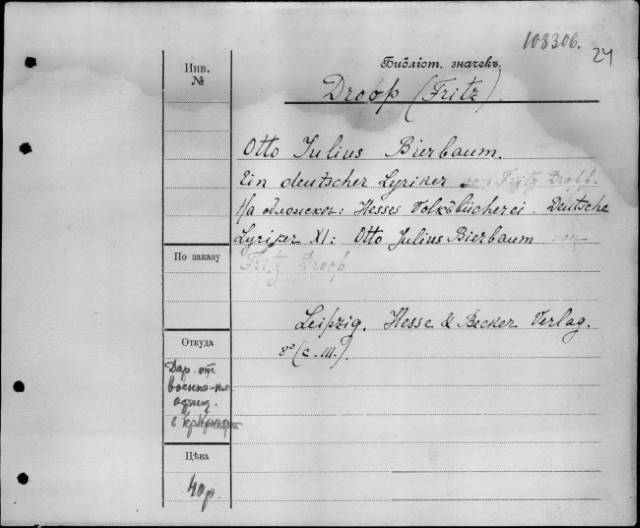 108306.
24
Библіот. значекъ.
Инв.
№
Droop (Fritz)
Otto Julius Bierbaum.
Ein deutscher Lyriker von Fritz Droop.
На обложкѣ: Hesses Volksbücherei. Deutsche
Lyriker XI: Otto Julius Bierbaum von
Fritz Droop
По заказу
Leipzig. Hesse & Becker Verlag.
8° (с. м.).
Откуда
Дар. от
военно-пл.
Цѣна
40р.